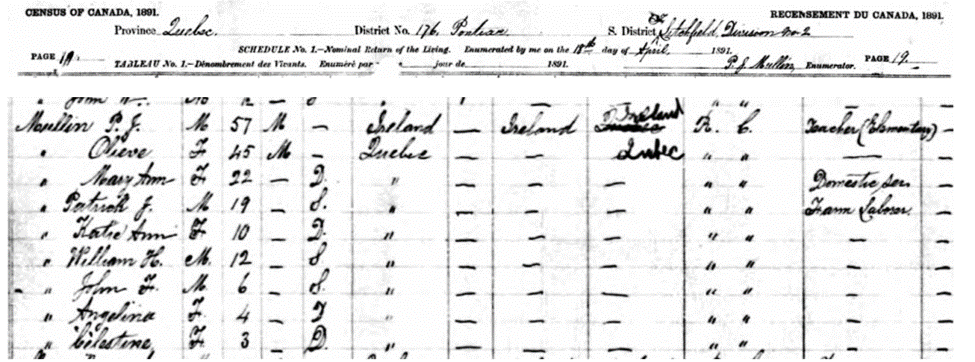 CENSUS OF CANADA, 1891. RECENSEMENT DU CANADA, 1891.
Province Quebec District No. 176 Pontiac S. District Of Litchfield, Division No 2
SCHEDULE No. 1.—Nominal Return of the Living. Enumerated by me on the 18th day of April 1891.
PAGE 19. PAGE 19.
TABLEAU No. 1.—Dénombrement des Vivants. Enuméré par " jour de 1891. P. J. Mullin, Enumerator.
" John
Mullin P. J. M 57 M — Ireland — Ireland Ireland R. C. Teacher (Elementary) —
" Olieve F 45 M — Quebec — — Qubec " " — —
" Mary Ann F. 22 — D. " — — — " " Domestic ser —
" Patrick J. M 19 — S. " — — — " " Farm Laborer —
" Katie Ann F. 10 — D. " — — — " " — —
" William H. M. 12 — S. " — — — " " — —
" John F. M 6 — S. " — — — " " — —
" Angelina F. 4 — D " — — — " " — —
" Celestina F. 3 — D. " — — — " " — —